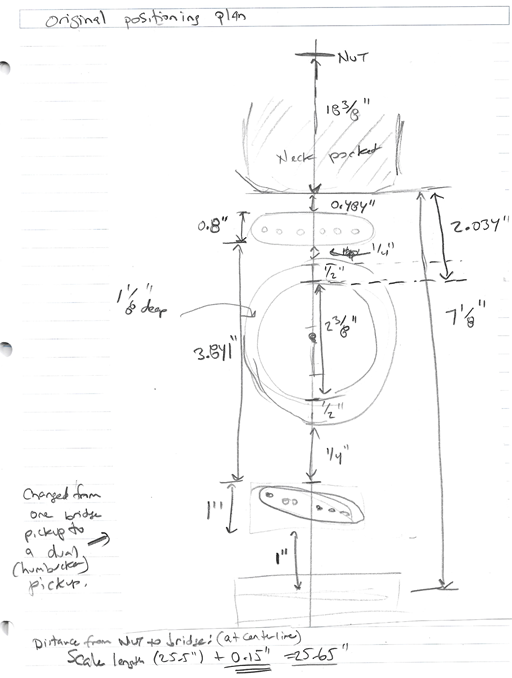 Original positioning plan
NUT
18 3/8"
Neck pocket
0.484"
0.8"
2.034"
1/4"
1/2"
1 1/8" deep
2 3/8"
7 1/8"
3.841"
1/2"
1/4"
Changed from
one bridge
pickup to
a dual
(humbucker)
pickup.
1"
1"
Distance from NUT to bridge: (at centerline)
Scale length (25.5") + 0.15" = 25.65"